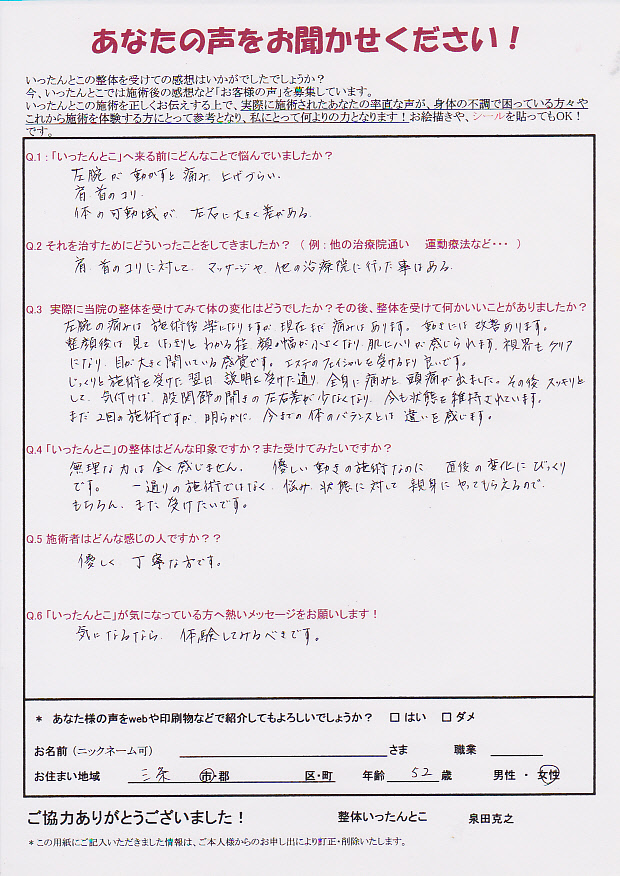 あなたの声をお聞かせください！
いったんとこの整体を受けての感想はいかがでしたでしょうか？
今、いったんとこでは施術後の感想など「お客様の声」を募集しています。
いったんとこの施術を正しくお伝えする上で、実際に施術されたあなたの率直な声が、身体の不調で困っている方々や
これから施術を体験する方にとって参考となり、私にとって何よりの力となります！お絵描きや、シールを貼ってもOK！
です。
Q.1：「いったんとこ」へ来る前にどんなことで悩んでいましたか？
左腕が動かすと痛み、上げづらい。
肩・首のコリ.
体の可動域が、左右に大きく差がある.
Q.2 それを治すためにどういったことをしてきましたか？（ 例：他の治療院通い　運動療法など・・・ ）
肩・首のコリに対して、マッサージや、他の治療院に行った事はある.
Q.3 実際に当院の整体を受けてみて体の変化はどうでしたか？その後、整体を受けて何かいいことがありましたか？
左腕の痛みは施術後楽になりますが現在まだ痛みはあります。動きには改善あります。
整顔後は見てはっきりとわかる程、顔の幅が小さくなり、肌にハリが感じられます。視界もクリア
になり、目が大きく開いている感覚です。エステのフェイシャルを受けるより良いです。
じっくりと施術を受けた翌日、説明を受けた通り、全身に痛みと頭痛が出ました。その後スッキリと
して、気付けば、股関節の開きの左右差が少なくなり、今も状態を維持されています。
まだ2回の施術ですが、明らかに、今までの体のバランスとは違いを感じます。
Q.4 「いったんとこ」の整体はどんな印象ですか？また受けてみたいですか？
無理な力は全く感じません.　優しい動きの施術なのに　直後の変化にびっくり
です。　一通りの施術ではなく、悩み、状態に対して親身にやってもらえるので、
もちろん、また受けたいです。
Q.5 施術者はどんな感じの人ですか？？
優しく、丁寧な方です。
Q.6 「いったんとこ」が気になっている方へ熱いメッセージをお願いします！
気になるなら、体験してみるべきです。
＊ あなた様の声をwebや印刷物などで紹介してもよろしいでしょうか？　□ はい　□ ダメ
お名前（ニックネーム可）　さま　職業
お住まい地域　三条　市・郡　区・町　年齢　52　歳　男性 ・ 女性
ご協力ありがとうございました！　整体いったんとこ　泉田克之
＊この用紙にご記入いただきました情報は、ご本人様からのお申し出により訂正・削除いたします。